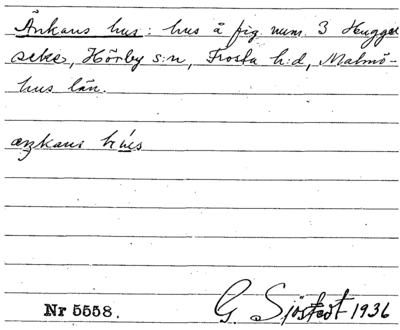 Änkans hus: hus å fig. num. 3 Hugge
seke, Hörby s:n, Frosta h:d, Malmö-
hus län.
hús
Nr 5558. G. Sjöstedt 1936